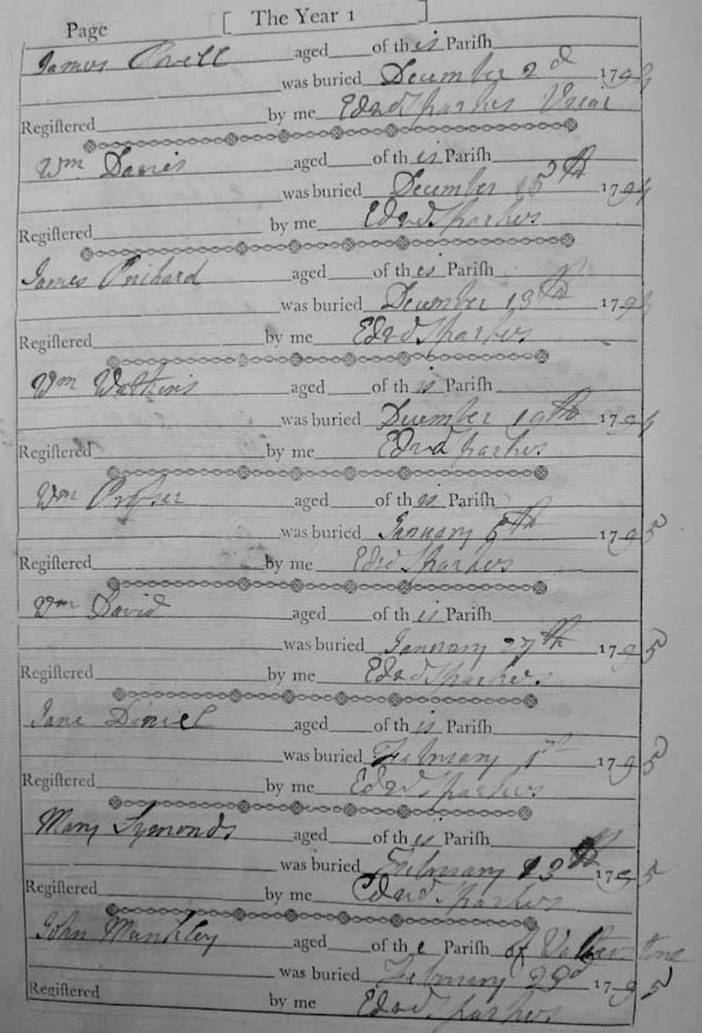 Page [ The Year 1 ]
James Powell aged of this Pariſh
was buried December 2d 1794
Regiſtered by me Edwd Sparkes Vicar
Wm Davies aged of this Pariſh
was buried December 1794
Regiſtered by me Edwd Sparkes
James Prichard aged of this Pariſh
was buried December 13th 1794
Regiſtered by me Edwd Sparkes
Wm Watkins aged of this Pariſh
was buried December 19th 1794
Regiſtered by me Edwd Sparkes
Wm Proſser aged of this Pariſh
was buried January 1795
Regiſtered by me Edwd Sparkes
Wm David aged of this Pariſh
was buried January 27th 1795
Regiſtered by me Edwd Sparkes
Jane Daniel aged of this Pariſh
was buried February 1st 1795
Regiſtered by me Edwd Sparkes
Mary Symonds aged of this Pariſh
was buried February 13th 1795
Regiſtered by me Edwd Sparkes
John aged of the Pariſh of
was buried February 23d 1795
Regiſtered by me Edwd Sparkes